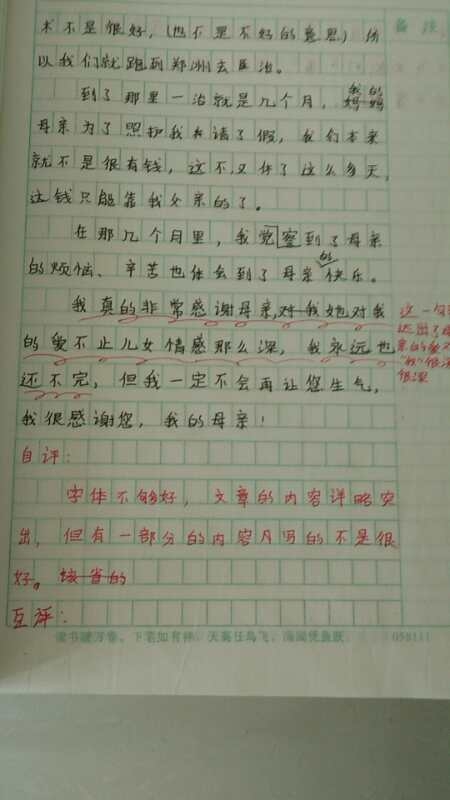 备注
术不是很好，（也不是不好的意思）所
以我们就跑到郑州去医治。
到了那里一治就是几个月，我的
妈妈
母亲为了照护我并请了假，我们本来
就不是很有钱，这不又住了这么多天，
这钱只能靠我父亲的了。
在那几个月里，我觉察到了母亲
的烦恼、辛苦也体会到了母亲的快乐。
我真的非常感谢母亲，对我她对我
的爱不止儿女情感那么深，我永远也
还不完，但我一定不会再让您生气，
我很感谢您，我的母亲！
这一句
达出了
亲的爱
“我”很
很深
自评：
字体不够好，文章的内容详略突
出，但有一部分的内容月写的不是很
好。该省的
互评：
读书破万卷，下笔如有神，天高任鸟飞，海阔凭鱼跃。